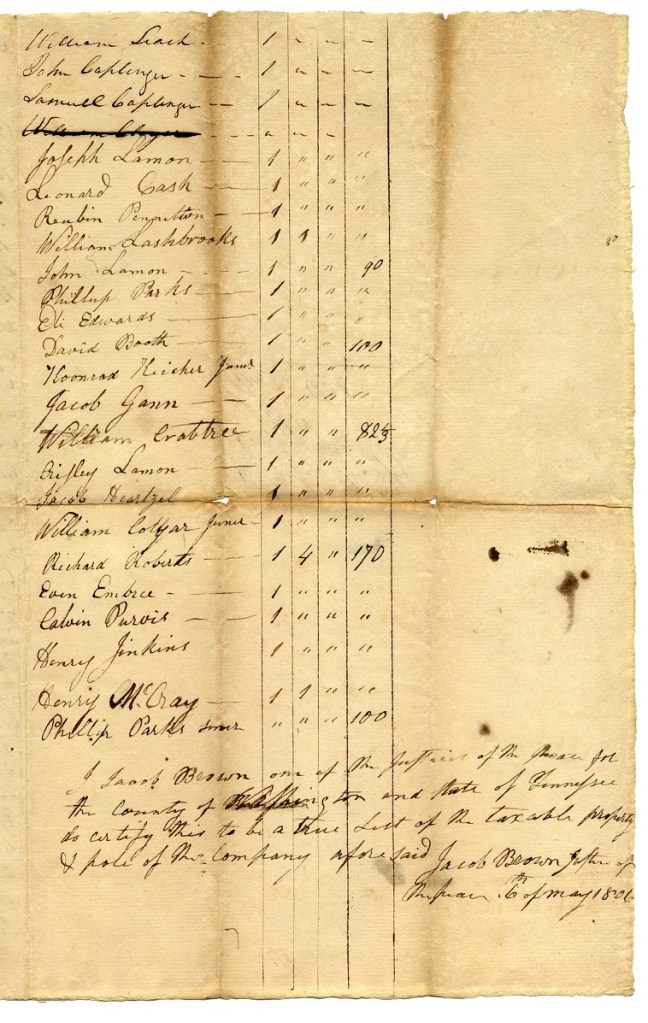 William Leach - 1 " " "
John Caplinger - - - 1 " " "
Samuel Caplinger - - 1 " " "
William - - - " " "
Joseph Lamon - - 1 " " "
Leonard Cash - 1 " " "
Reubin - 1 " " "
William Lashbrooks 1 1 " "
John Lamon - - - 1 " " 90
Phillip Parks - 1 " " "
Eli Edwards - - 1 " " "
David Booth - 1 " " 100
Koonrad Juner 1 " " "
Jacob Gann - - 1 " " "
William Crabtree 1 " " 825
Lamon - - 1 " " "
Jacob Heartzel 1 " " "
William Juner - 1 " " "
Richard Roberts - 1 4 " 170
Even Embree - - 1 " " "
Calvin Purvis - - 1 " " "
Henry Jinkins 1 " " "
Henry McCray - 1 1 " "
Phillip Parks " " " 100
I Jacob Brown one of the Justices of the peace for
the County of Washington and State of Tennessee
do certify this to be a true List of the taxable property
& pole of the Company afore said Jacob Brown Justice of
the peace 6th of may 1806